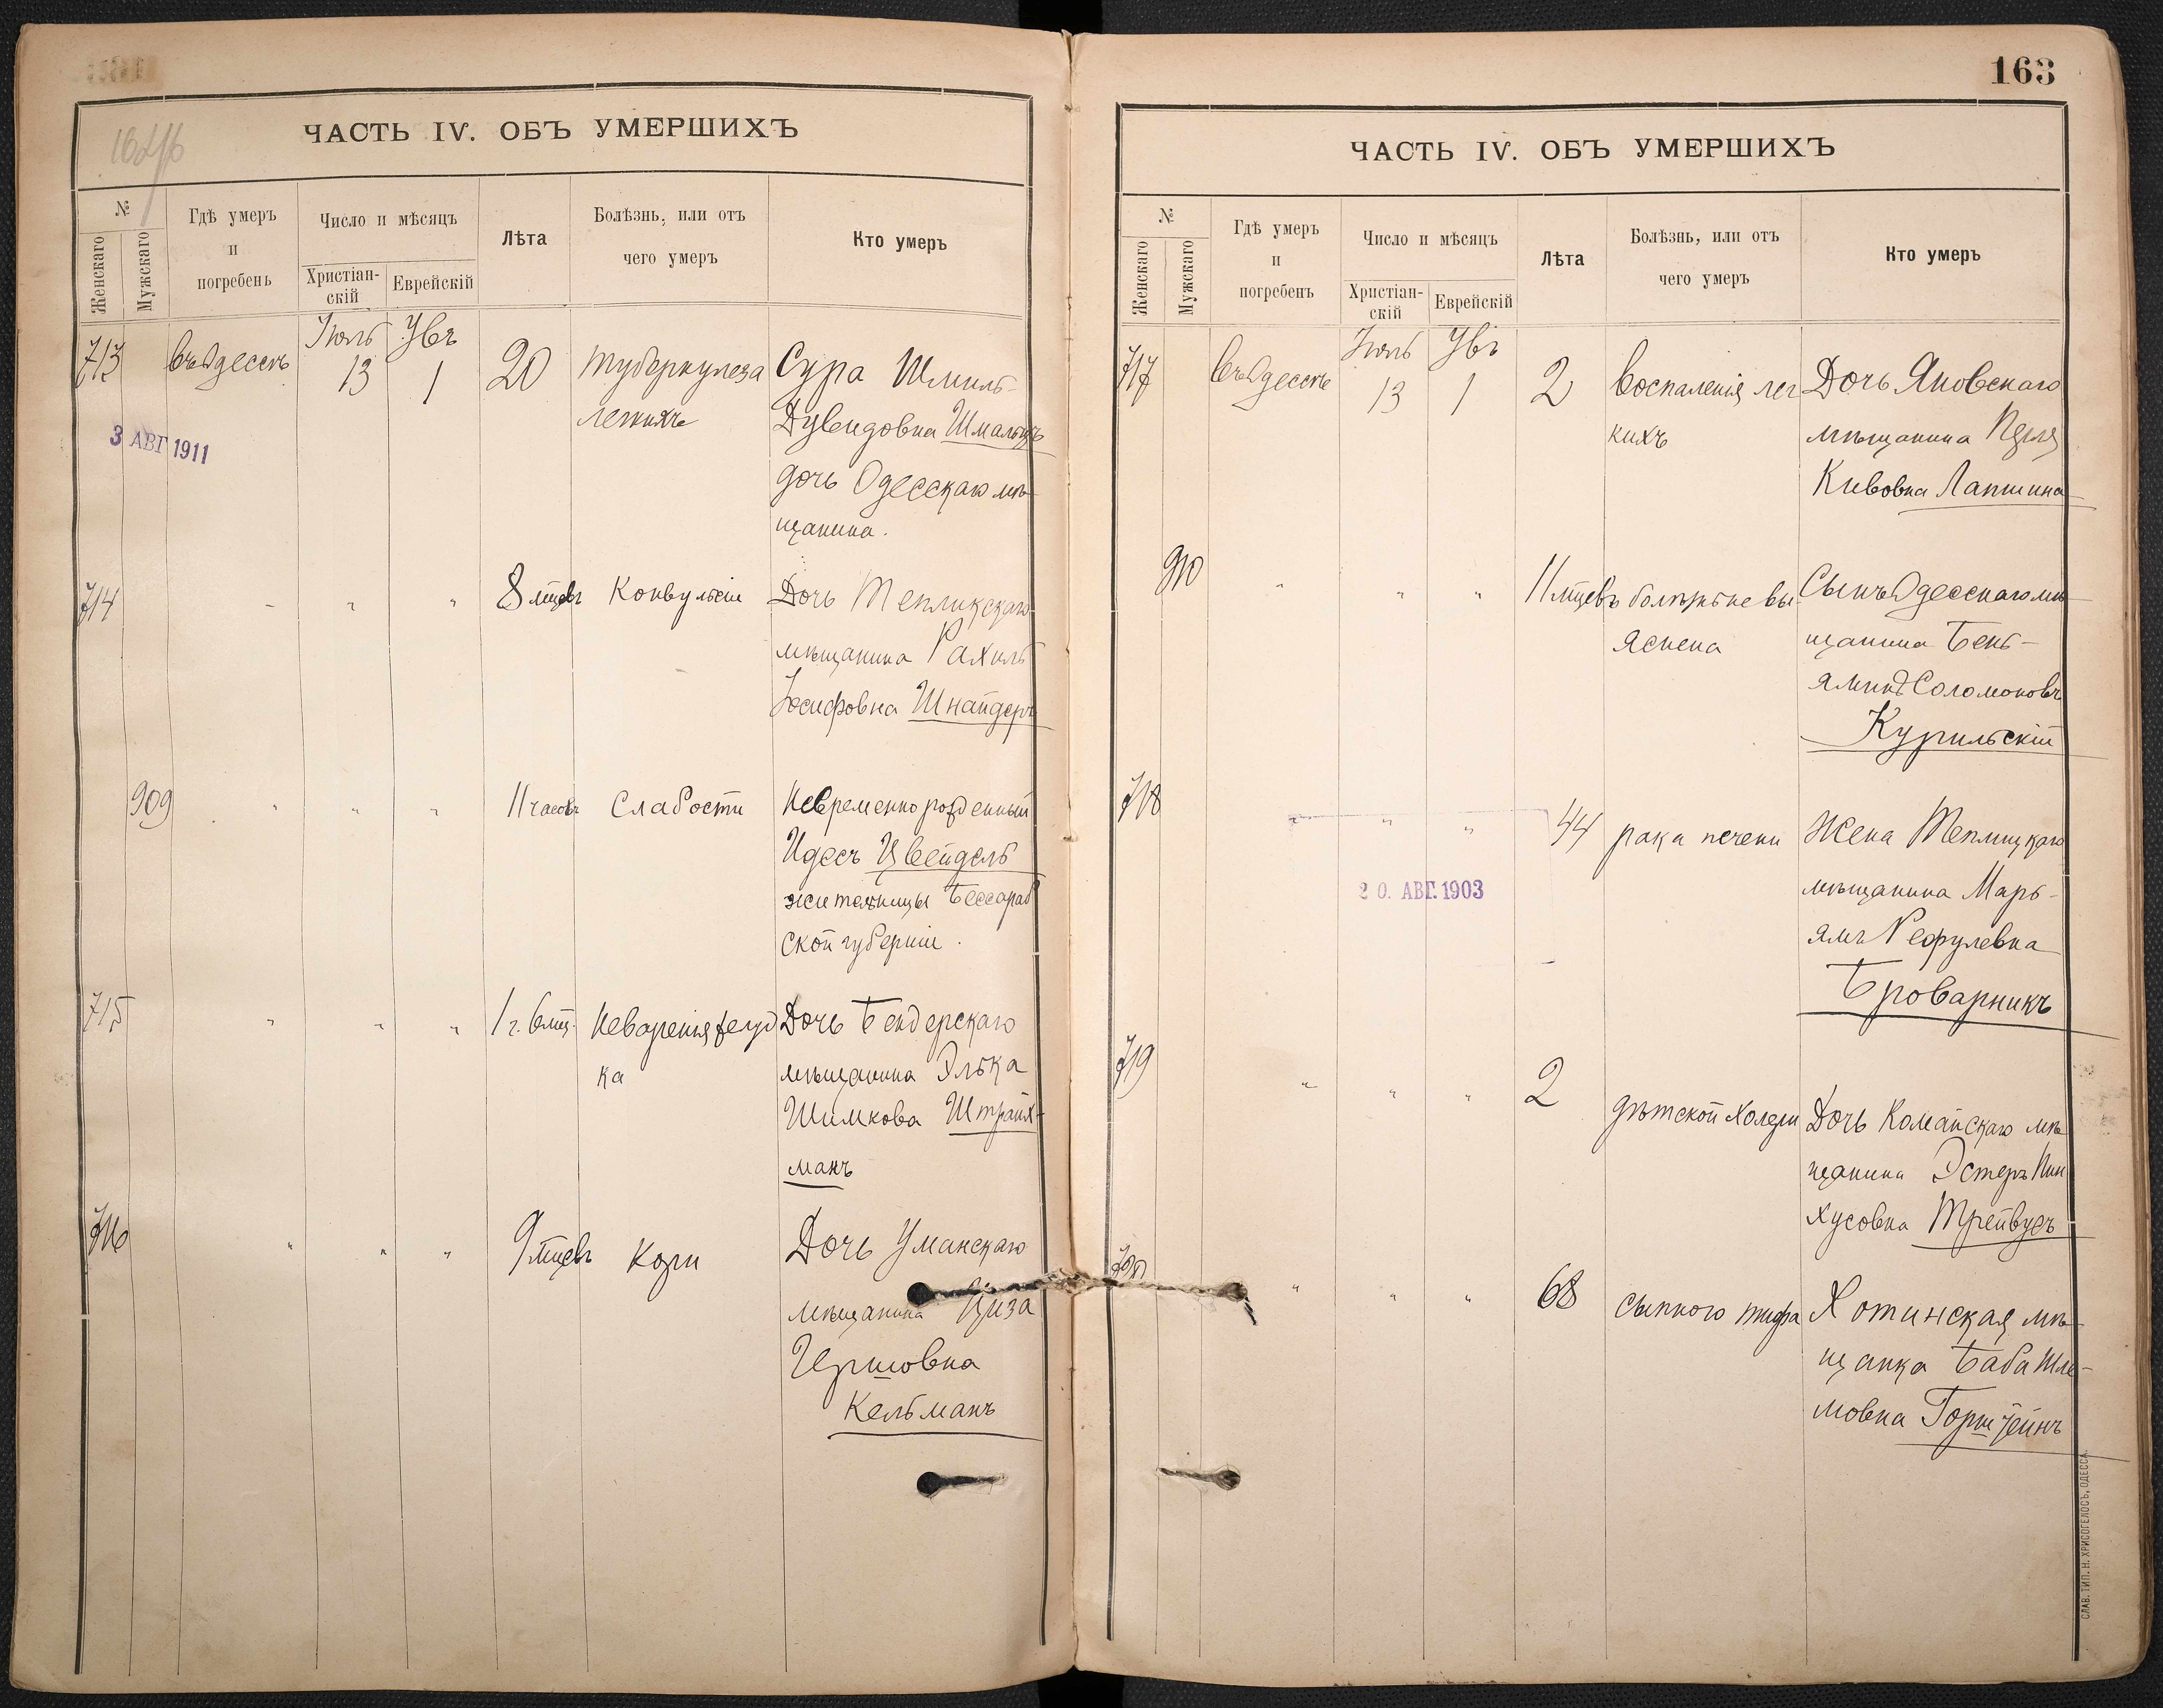 163
ЧАСТЬ IV. ОБЪ УМЕРШИХЪ
№
Женскаго
Мужскаго
Гдѣ умеръ
и
погребенъ
Число и мѣсяцъ
Христіан-
скій
Еврейскій
Лѣта
Болѣзнь, или отъ
чего умеръ
Кто умеръ
713
въ Одессѣ
Іюль
13
Увъ
1
20
туберкулеза
легкихъ
Сура Шмиль-
Дувидовна Шмальцъ
дочь Одесскаго мѣ-
щанина.
3 АВГ 1911
714
" " "
8 мцевъ
Конвульсіи
Дочь Тепликскаго
мѣщанина Рахиль
Іосифовна Шнайдеръ
909
" " "
11 часовъ
Слабости
Невременно рожденный
Идесъ Цвейгель
жительницы Бессараб
ской губерніи.
715
" " "
1 г. 6 мц.
Неваренія желуд
ка
Дочь Бендерскаго
мѣщанина Элька
Шимкова Штрайх-
манъ
716
" " "
9 мцевъ
Кори
Дочь Уманскаго
мѣщанина
Гершовна
Кельманъ
ЧАСТЬ IV. ОБЪ УМЕРШИХЪ
№
Женскаго
Мужскаго
Гдѣ умеръ
и
погребенъ
Число и мѣсяцъ
Христіан-
скій
Еврейскій
Лѣта
Болѣзнь, или отъ
чего умеръ
Кто умеръ
717
въ Одессѣ
Іюль
13
Увъ
1
2
воспаленія лег
кихъ
Дочь Яновскаго
мѣщанина
Кивовна Лапшина
910
" " "
11 мцевъ
болѣзнь не вы-
яснена
Сынъ Одесскаго мѣ
щанина Бень-
яминъ Соломоновъ
Курильскій
718
" " "
44
рака печени
Жена Теплицкаго
мѣщанина Марь-
ямъ Рефулевна
Броварникъ
2 0. АВГ. 1903
719
" " "
2
дѣтской холеры
Дочь Комайскаго мѣ
щанина Эстеръ Пин
хусовна Трейвусъ
720
" " "
68
сыпного тифа
Хотинская мѣ-
щанка Баба Шле-
мовна Горштейнъ
СЛАВ. ТИП. Н. ХРИСОГЕЛОСЪ, ОДЕССА.